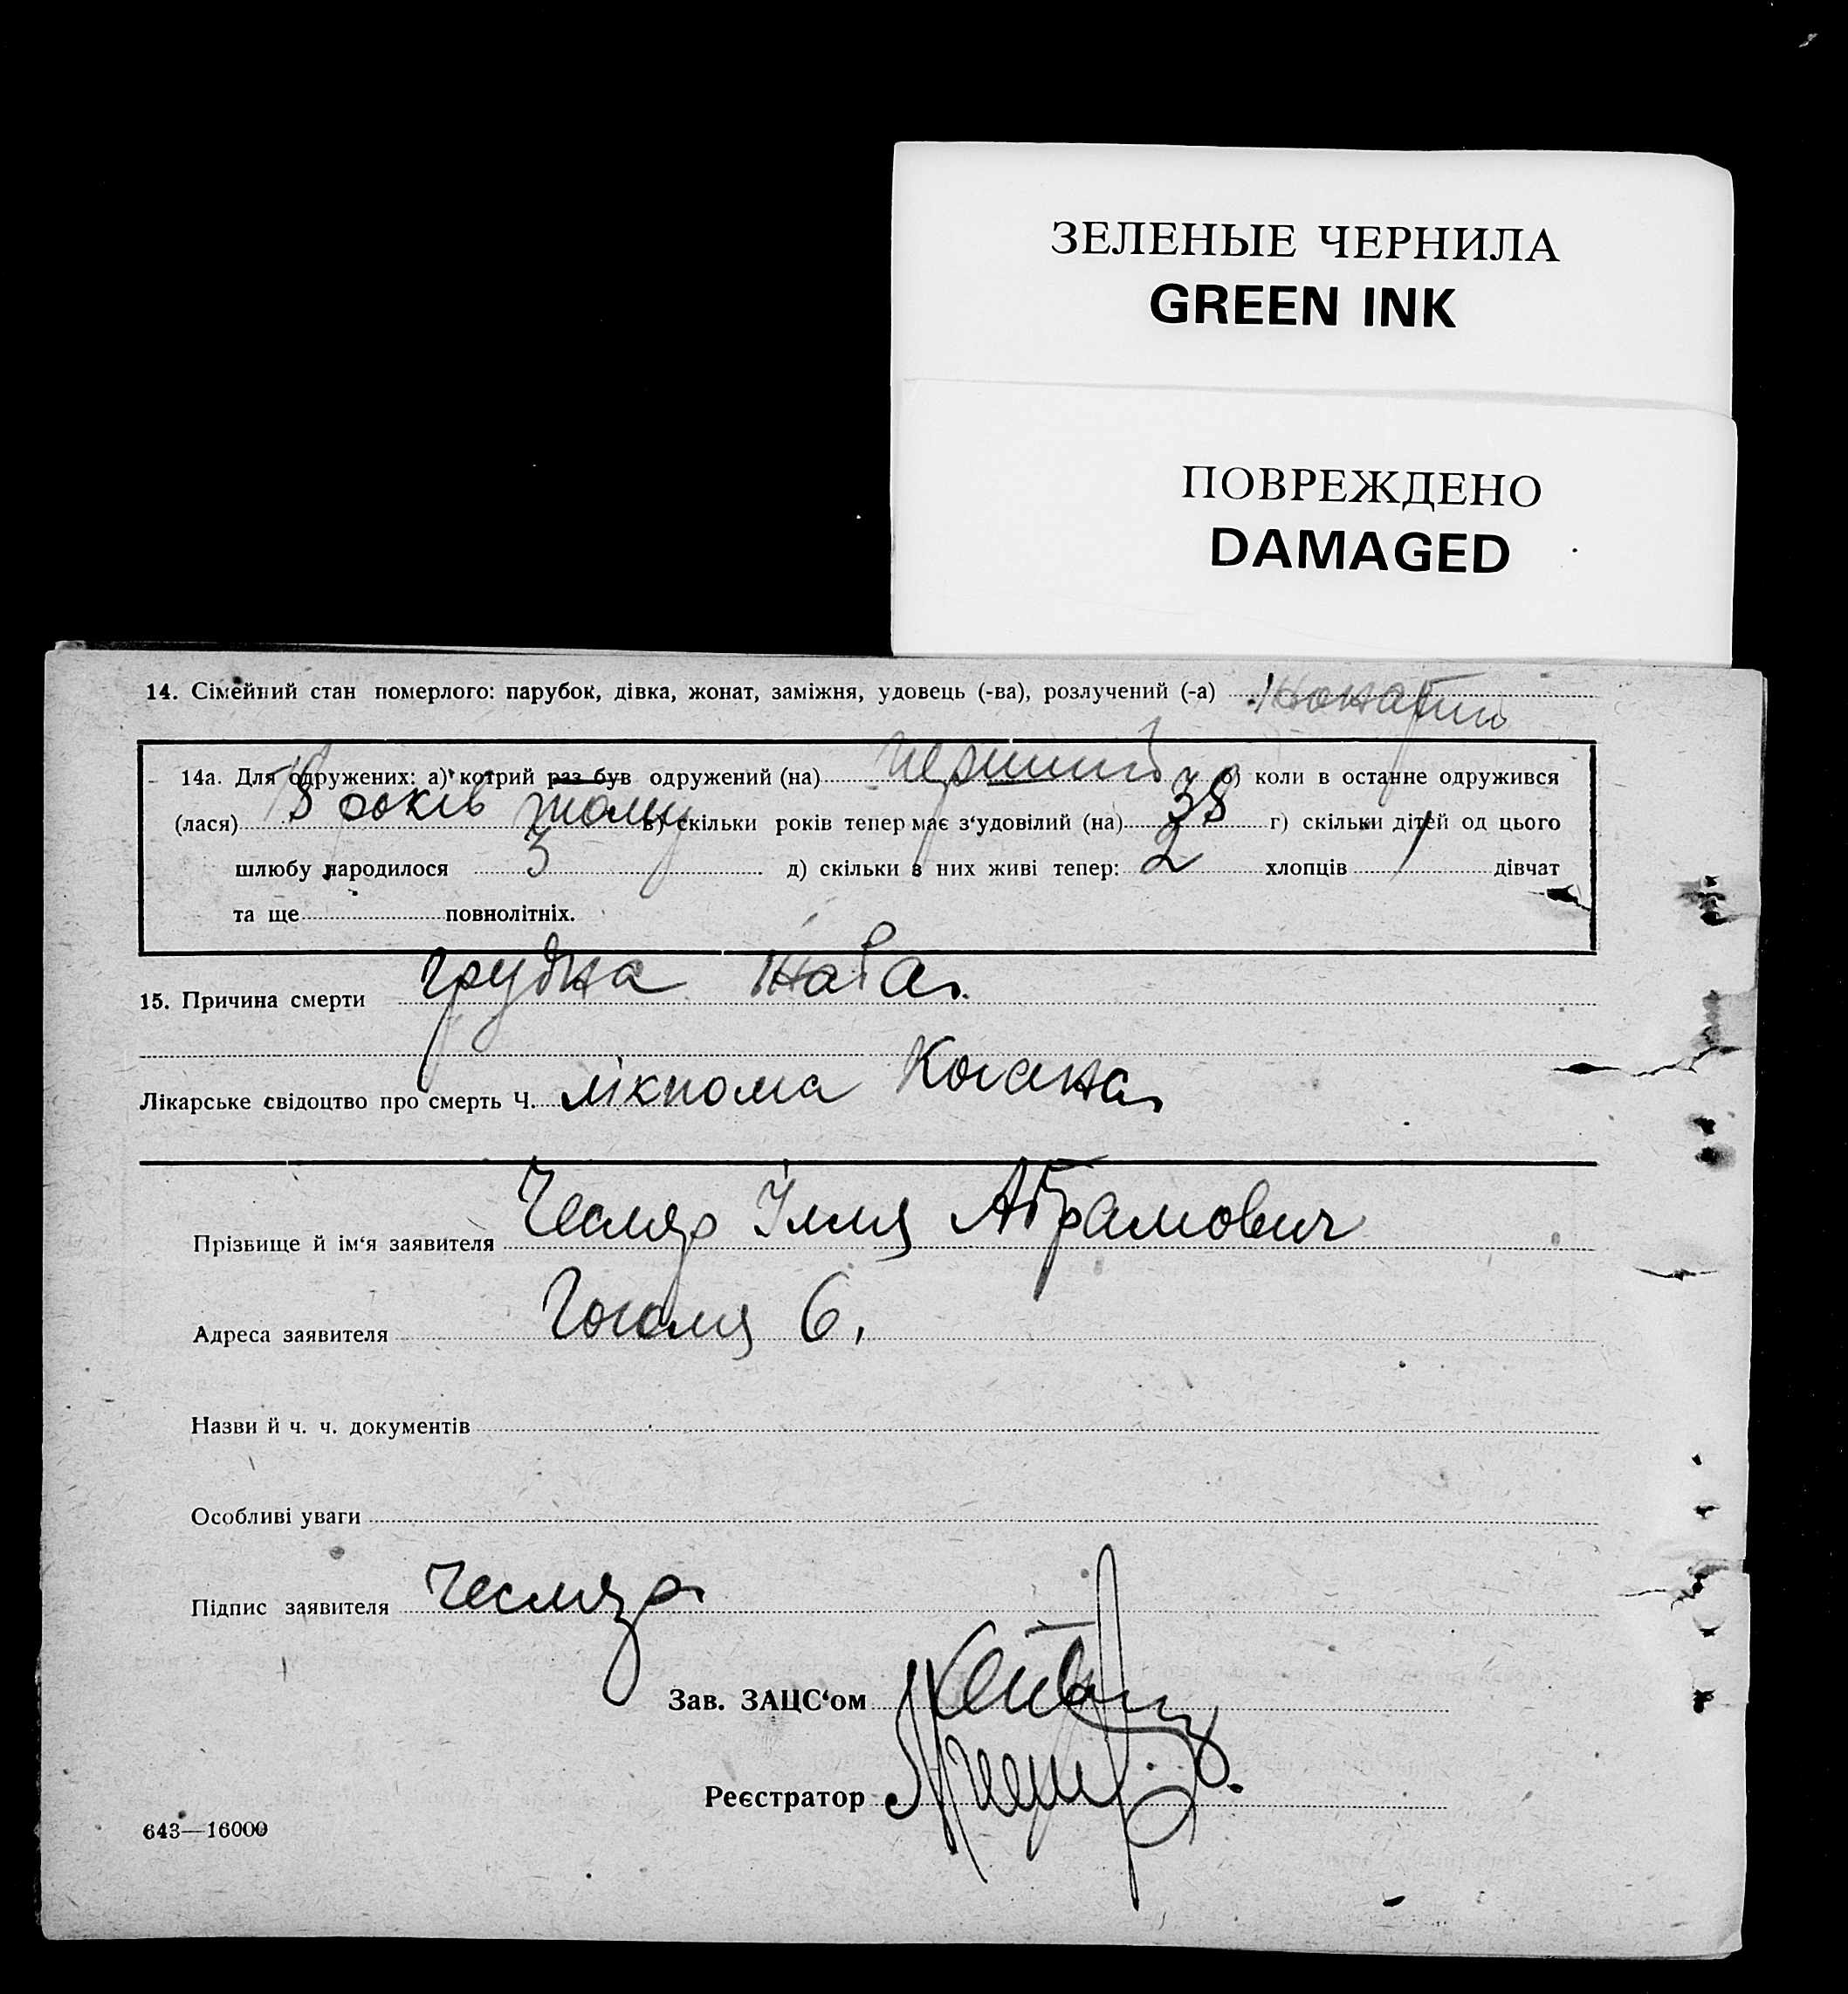 ЗЕЛЕНЫЕ ЧЕРНИЛА
GREEN INK
ПОВРЕЖДЕНО
DAMAGED
14. Сімейний стан померлого: парубок, дівка, жонат, заміжня, удовець (-ва), розлучений (-а) жонатий
14а. Для одружених: а) котрий раз був одружений (на) перший б) коли в останнє одружився
(лася) років тому в) скільки років тепер має з‘удовілий (на) 38 г) скільки дітей од цього
шлюбу народилося 3 д) скільки в них живі тепер: 2 хлопців 1 дівчат
та ще повнолітніх.
15. Причина смерти грудна жаба.
Лікарське свідоцтво про смерть Ч. лікпома Когана
Прізвище й ім‘я заявителя Чесляр Ілля Абрамович
Адреса заявителя Гоголя 6.
Назви й ч. ч. документів
Особливі уваги
Підпис заявителя Чесляр
Зав. ЗАЦС‘ом
Реєстратор
643—16000